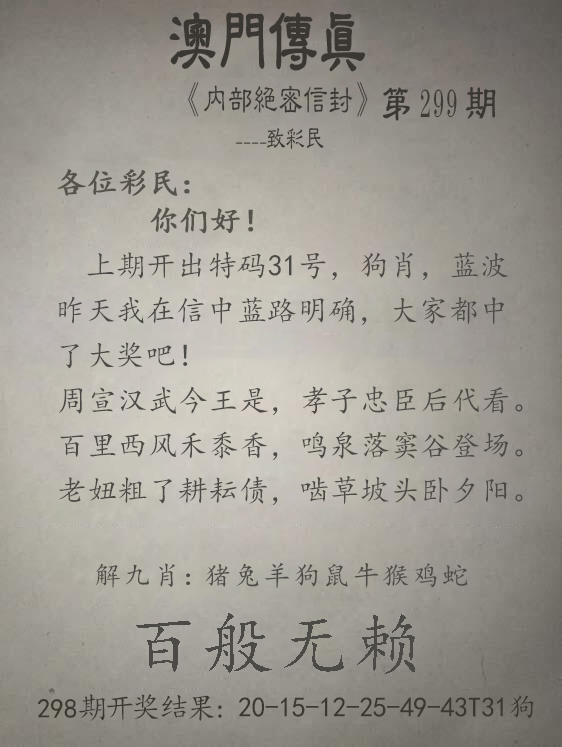 澳門傳眞
《内部絕密信封》第299期
----致彩民
各位彩民：
你们好！
上期开出特码31号，狗肖，蓝波
昨天我在信中蓝路明确，大家都中
了大奖吧！
周宣汉武今王是，孝子忠臣后代看。
百里西风禾黍香，鸣泉落窦谷登场。
老妞粗了耕耘债，啮草坡头卧夕阳。
解九肖：猪兔羊狗鼠牛猴鸡蛇
百般无赖
298期开奖结果：20-15-12-25-49-43T31狗